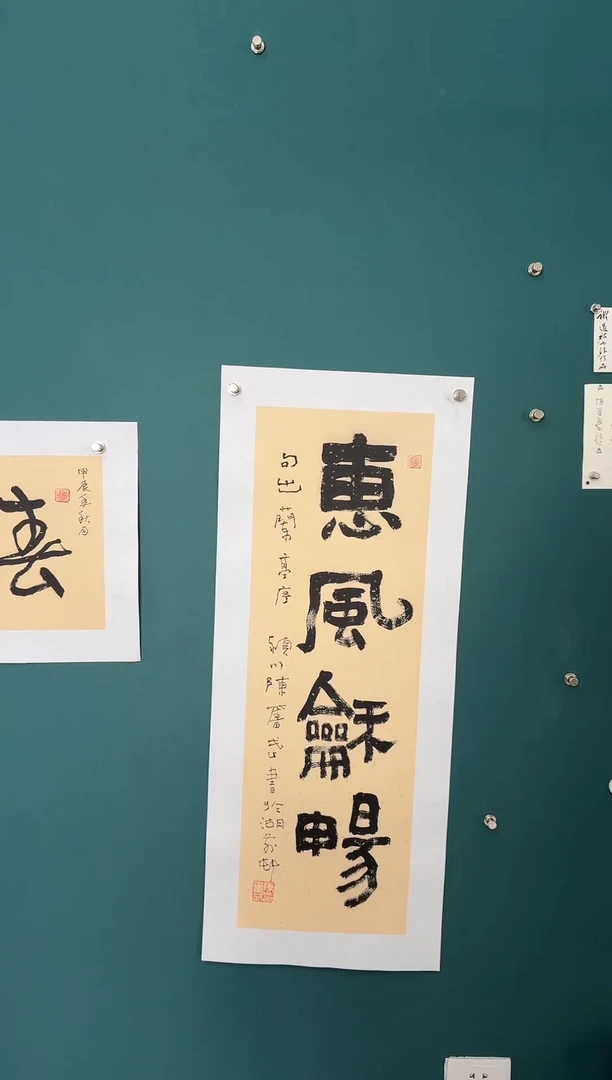 惠風龢暢
句出蘭亭序 潁川陳舊武書於湖前邨
甲辰年秋月
春